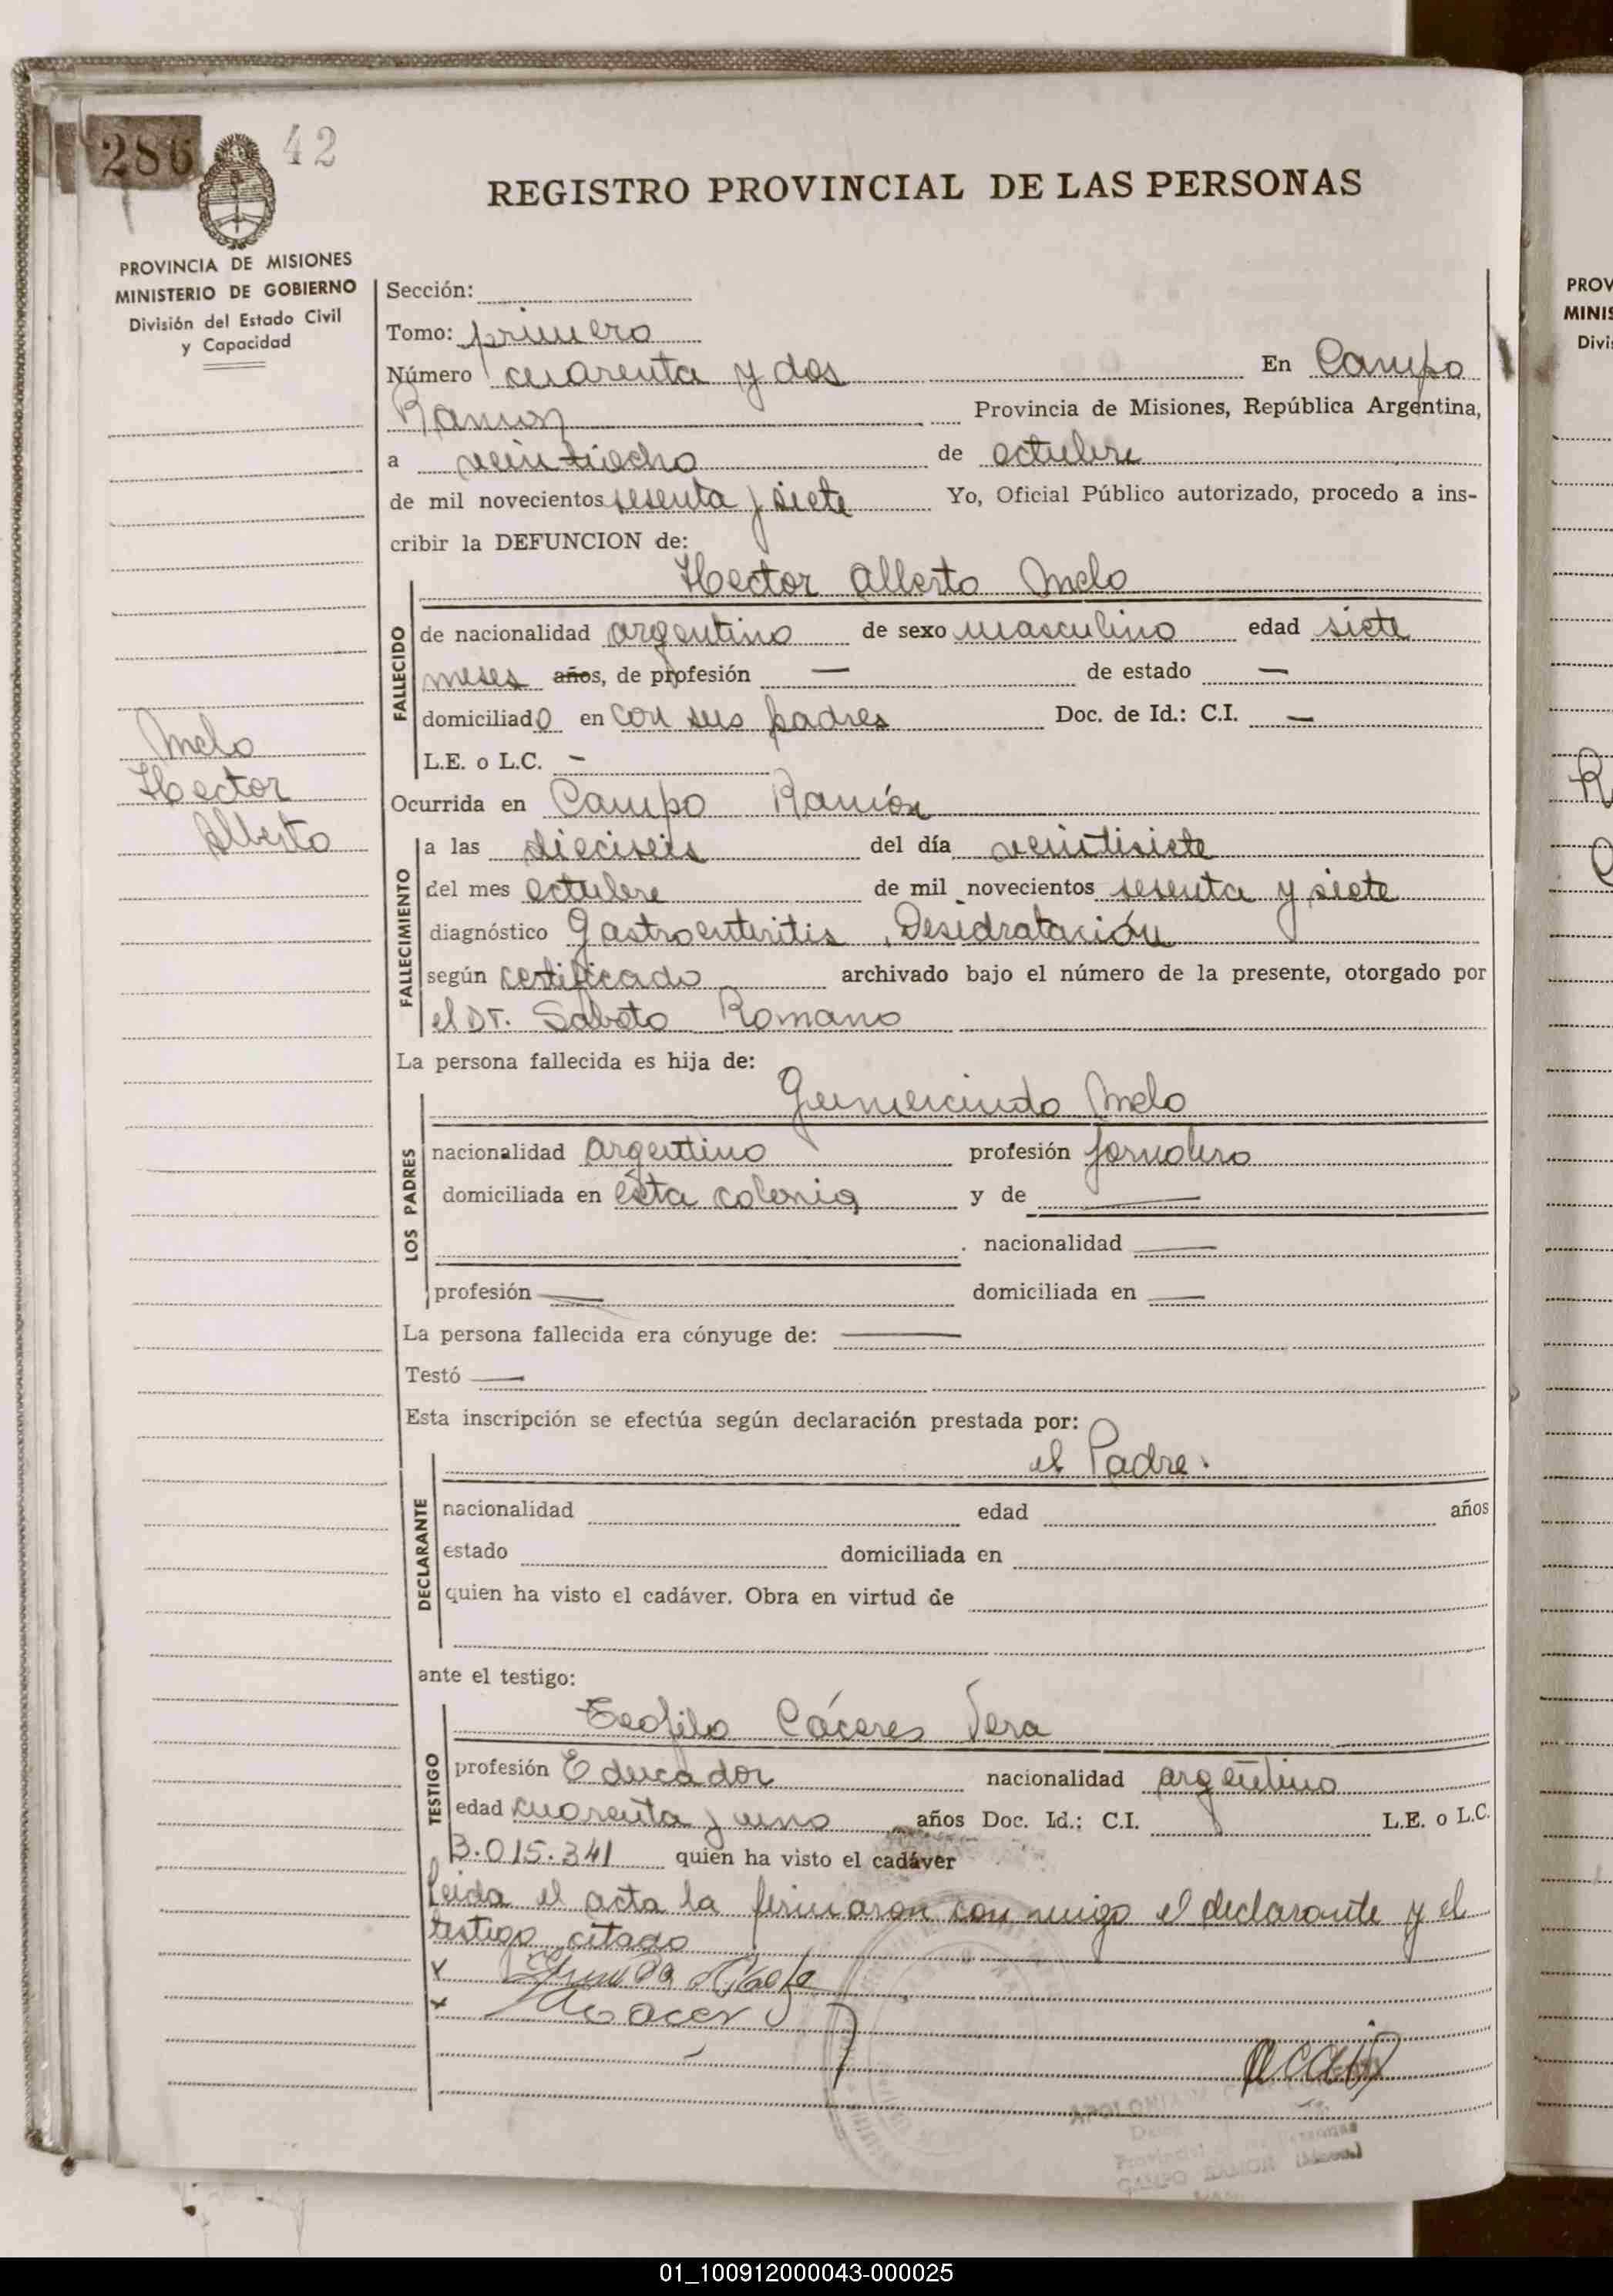 286
42
REGISTRO PROVINCIAL DE LAS PERSONAS
PROVINCIA DE MISIONES
MINISTERIO DE GOBIERNO
División del Estado Civil
y Capacidad
Sección:
Tomo: primero
Número cuarenta y dos En Campo
Ramon Provincia de Misiones, República Argentina,
a veintiocho de octubre
de mil novecientos sesenta y siete Yo, Oficial Público autorizado, procedo a ins-
cribir la DEFUNCION de:
Hector Alberto Melo
FALLECIDO
de nacionalidad argentino de sexo masculino edad siete
meses años, de profesión — de estado —
domiciliado en con sus padres Doc. de Id.: C.I. —
L.E. o L.C. -
Melo
Hector
Alberto
Ocurrida en Campo Ramón
FALLECIMIENTO
a las dieciseis del día veintisiete
del mes octubre de mil novecientos sesenta y siete
diagnóstico Gastroenteritis, Desidratación
según certificado archivado bajo el número de la presente, otorgado por
el Dr. Sabato Romano
La persona fallecida es hija de:
Gumercindo Melo
LOS PADRES
nacionalidad argentino profesión jornalero
domiciliada en esta colonia y de —
. nacionalidad —
profesión — domiciliada en —
La persona fallecida era cónyuge de: —
Testó —
Esta inscripción se efectúa según declaración prestada por:
el Padre.
DECLARANTE
nacionalidad edad años
estado domiciliada en
quien ha visto el cadáver. Obra en virtud de
ante el testigo:
Teofilo Cáceres Vera
TESTIGO
profesión Educador nacionalidad argentino
edad cuarenta y uno años Doc. Id.: C.I. L.E. o L.C.
3.015.341 quien ha visto el cadáver
Leida el acta la firmaron conmigo el declarante y el
testigo citado
APOLONIA
Provincial
CAMPO RAMON (Misiones)
PROV
MINIS
Divi
01_100912000043-000025